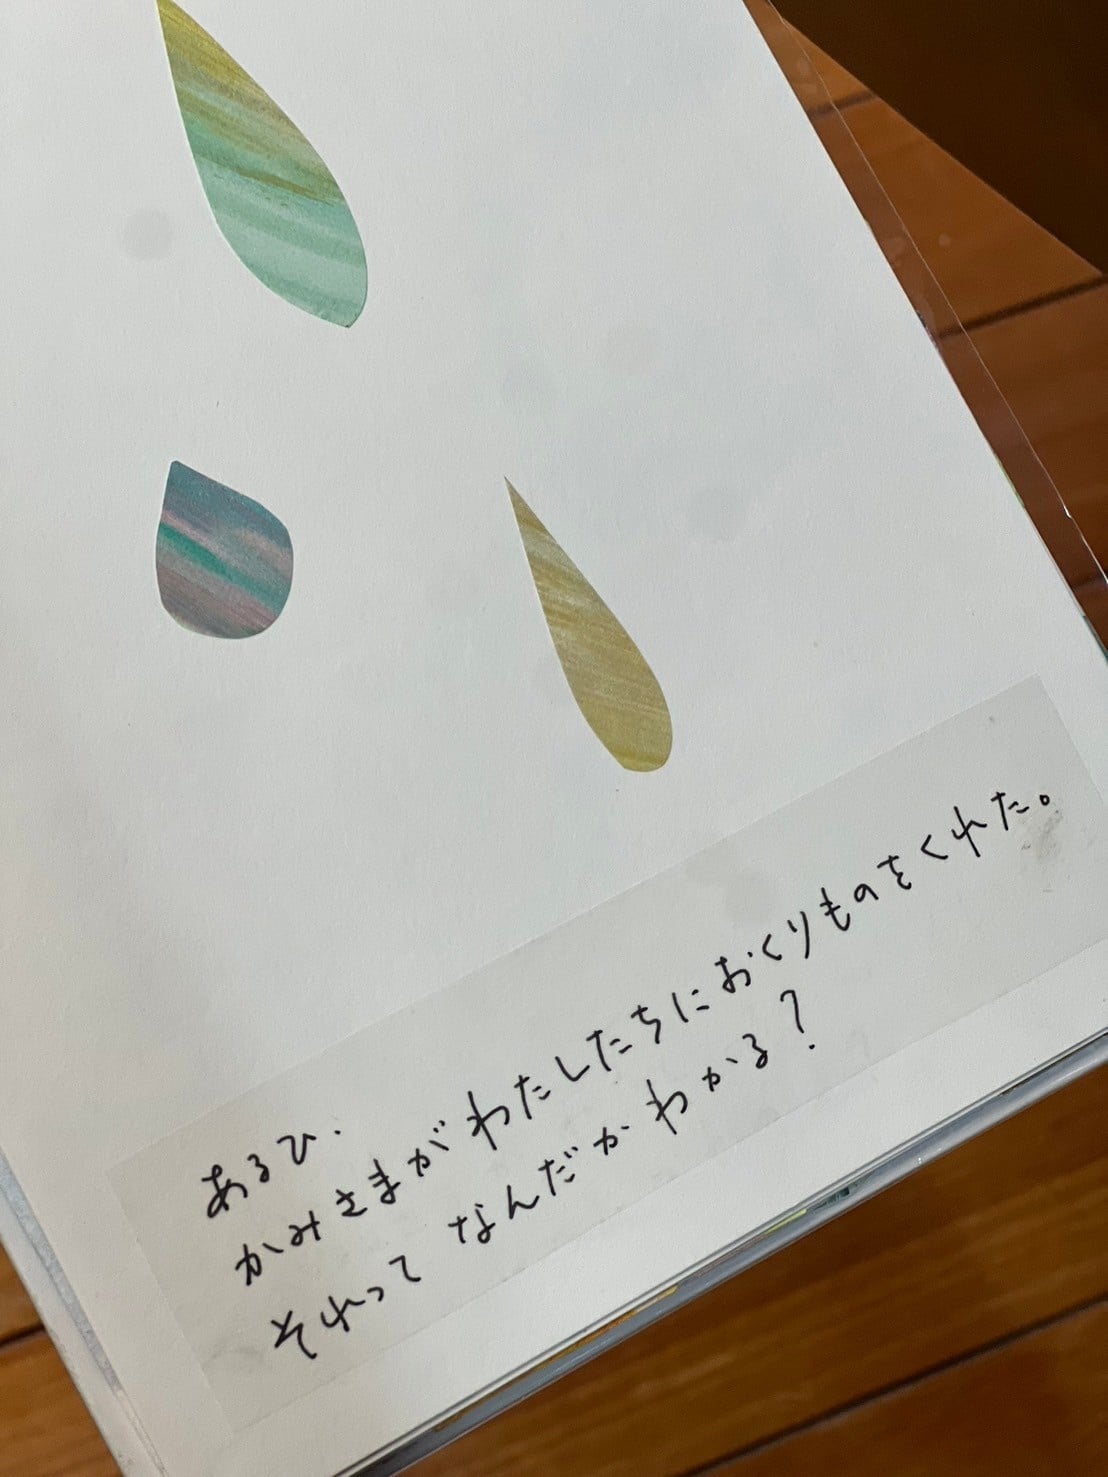 あるひ、
かみさまがわたしたちにおくりものをくれた。
それって なんだかわかる?